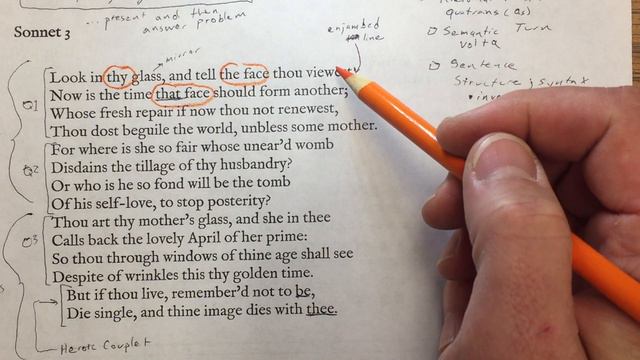 ...present and then
answer problem
Sonnet 3
mirror
enjambed
line
quatrains (Qs)
Semantic Turn
volta
Sentence
Structure; syntax
Look in thy glass, and tell the face thou viewe
Now is the time that face should form another;
Whose fresh repair if now thou not renewest,
Thou dost beguile the world, unbless some mother.
Q1
For where is she so fair whose unear'd womb
Disdains the tillage of thy husbandry?
Or who is he so fond will be the tomb
Of his self-love, to stop posterity?
Q2
Thou art thy mother's glass, and she in thee
Calls back the lovely April of her prime:
So thou through windows of thine age shall see
Despite of wrinkles this thy golden time.
Q3
But if thou live, remember'd not to be,
Die single, and thine image dies with thee.
Heroic Couplet